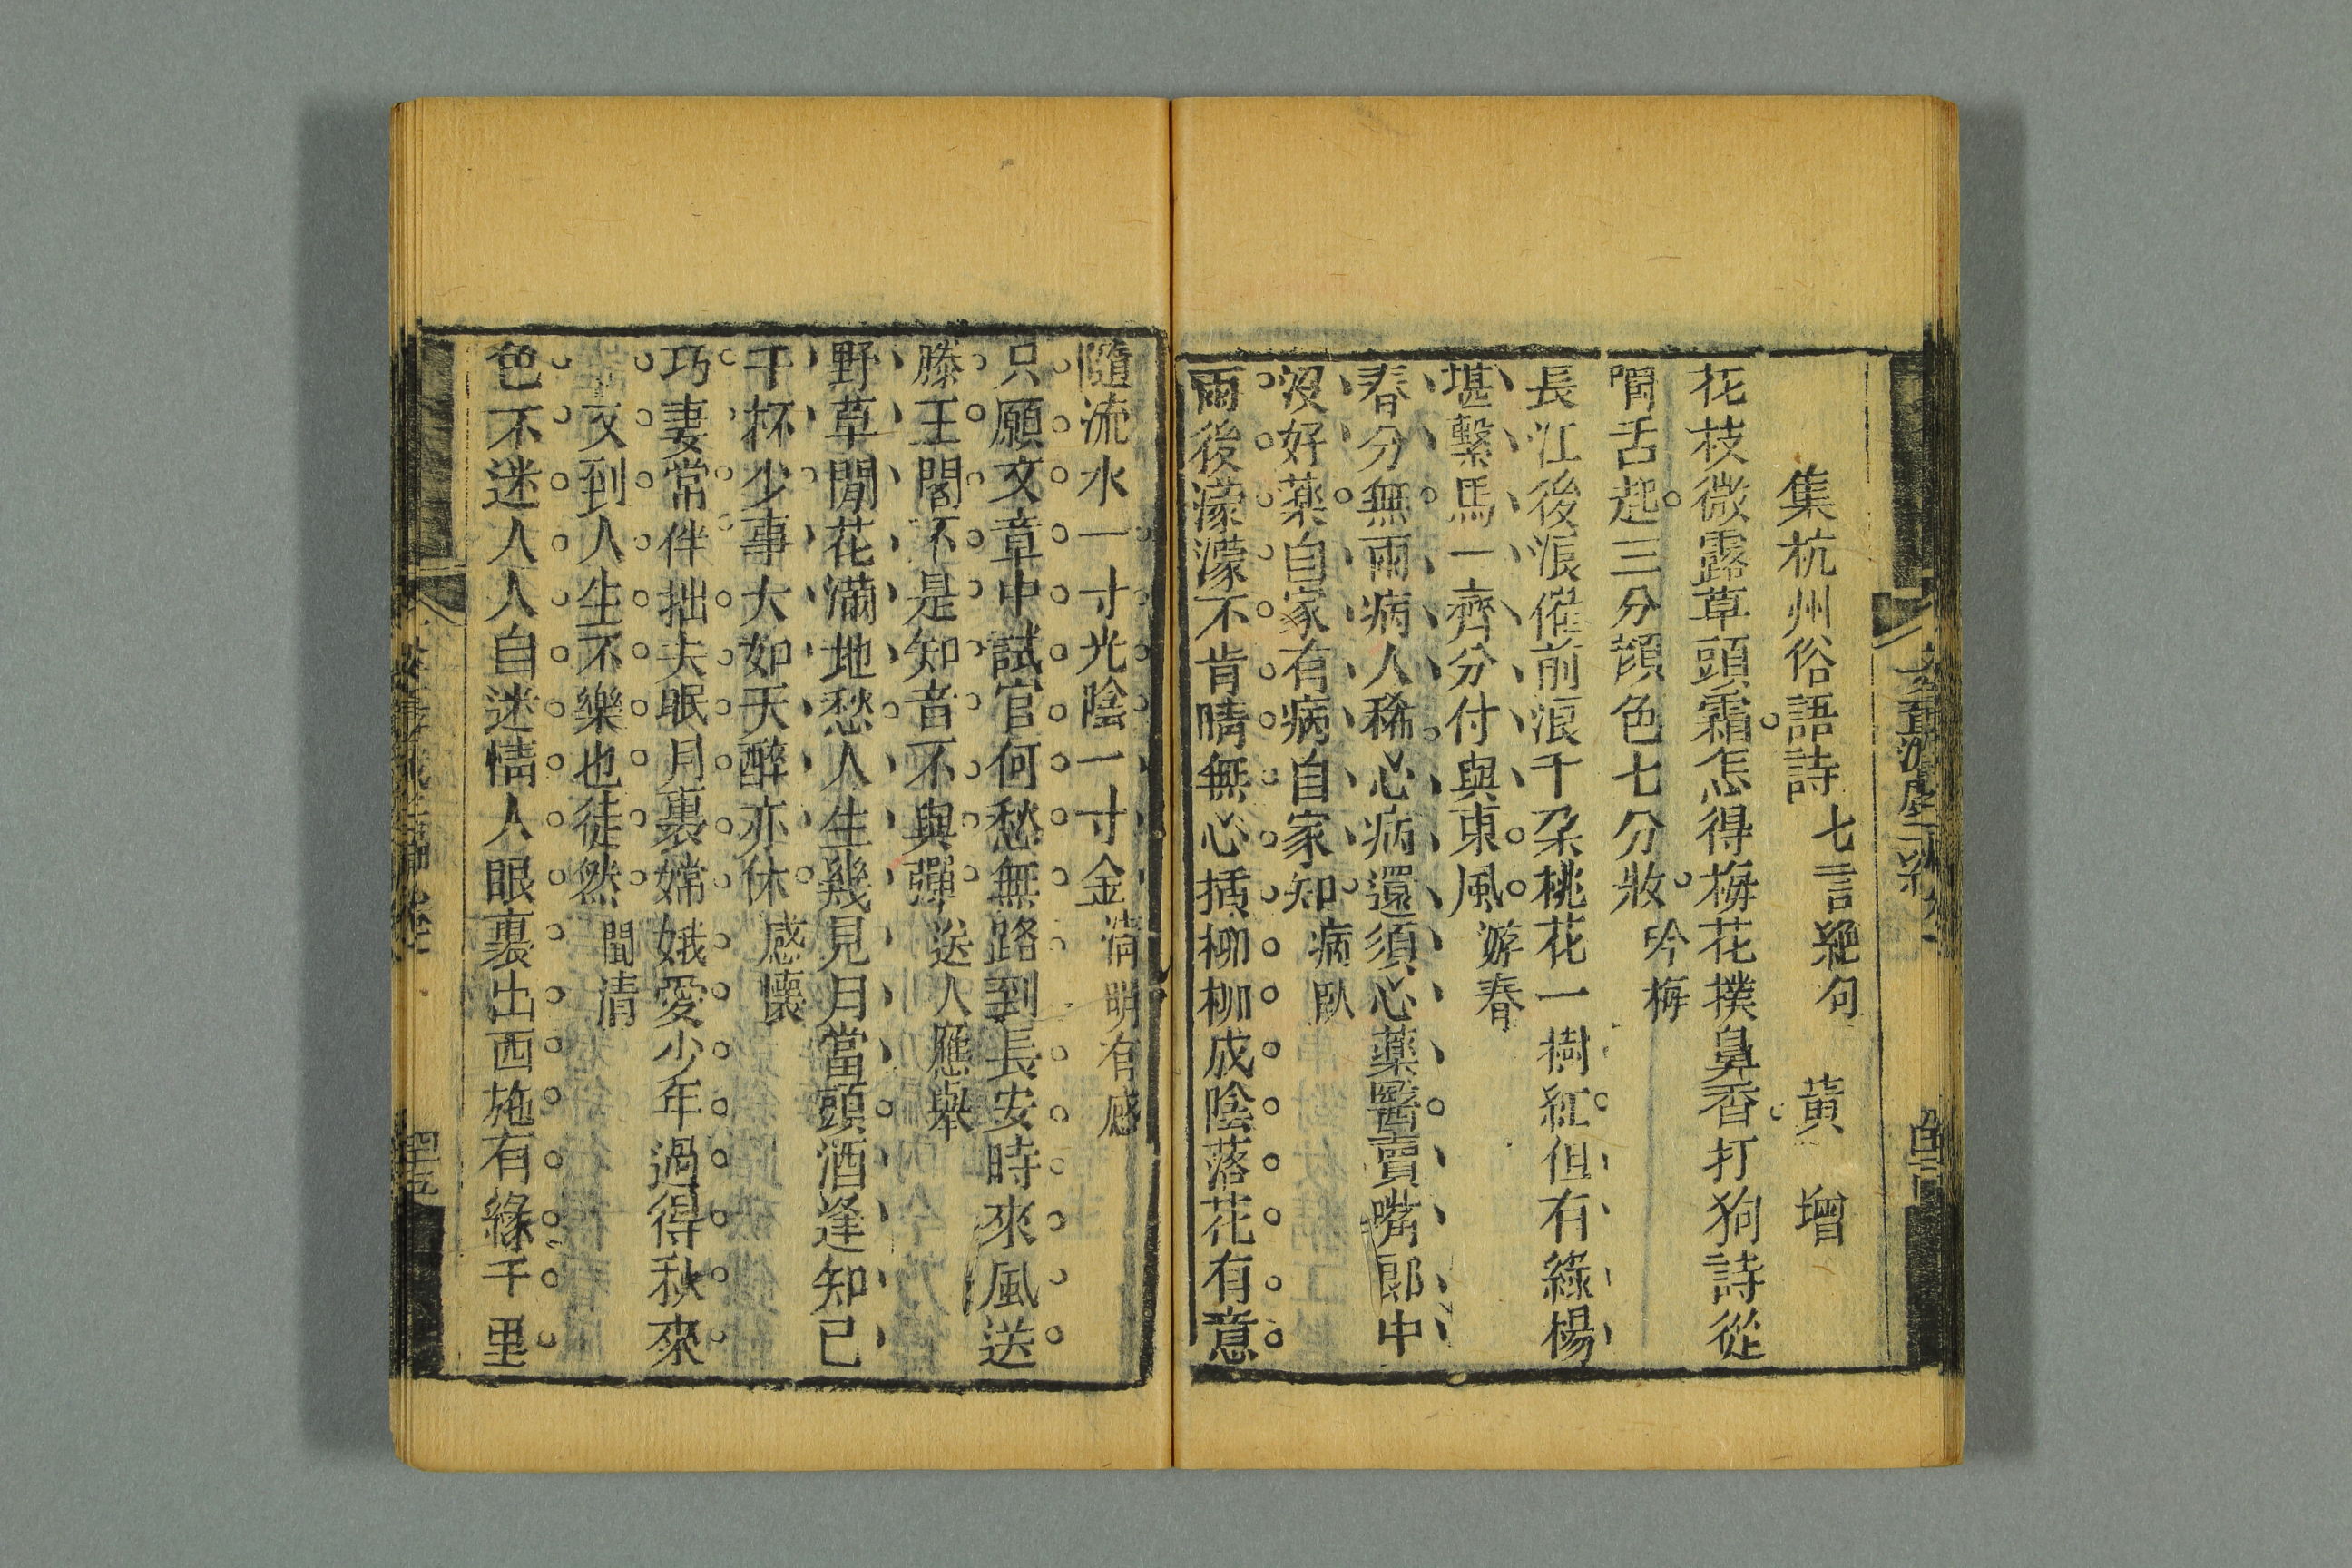 集杭州俗語詩 七言絕句 黃 增
花枝微露草頭霜怎得梅花撲鼻香打狗詩從
閒舌起三分顏色七分妝 吟梅
長江後浪催前浪千朶桃花一樹紅但有綠楊
堪繫馬一齊分付與東風 游春
春分無雨病人稀心病還須心藥醫賣嘴郎中
沒好藥自家有病自家知 病臥
雨後濛濛不肯晴無心插柳柳成陰落花有意
隨流水一寸光陰一寸金 清明有感
只願文章中試官何愁無路到長安時來風送
滕王閣不是知音不與彈 送人應舉
野草閒花滿地愁人生幾見月當頭酒逢知己
千杯少事大如天醉亦休 感懷
巧妻常伴拙夫眠月裏嫦娥愛少年過得秋來
又到人生不樂也徒然 閨清
色不迷人人自迷情人眼裏出西施有緣千里